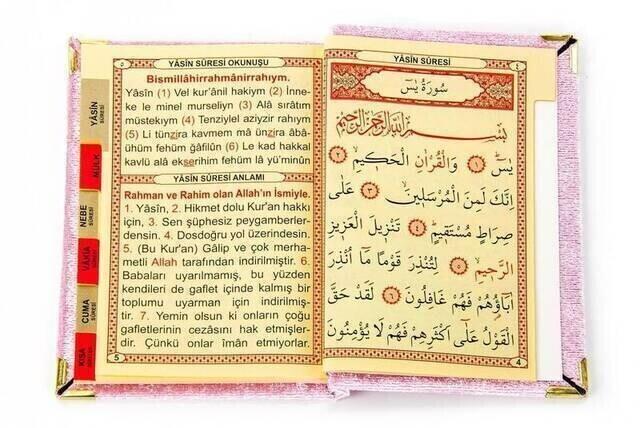 ٥
YÂSİN SÛRESİ OKUNUŞU
Bismillâhirrahmânirrahıym.
Yâsîn (1) Vel kur'ânil hakiym (2) İnne-
ke le minel murseliyn (3) Alâ sırâtım
müstekıym (4) Tenziylel aziyzir rahıym
(5) Li tünzira kavmem mâ ünzira âbâ-
ühüm fehüm gâfilûn (6) Le kad hakkal
kavlü alâ ekserihim fehüm lâ yü'minûn
YÂSİN SÛRESİ ANLAMI
Rahman ve Rahim olan Allah'ın İsmiyle.
1. Yâsîn, 2. Hikmet dolu Kur'an hakkı
için, 3. Sen şüphesiz peygamberler-
densin. 4. Dosdoğru yol üzerindesin.
5. (Bu Kur'an) Gâlip ve çok merha-
metli Allah tarafından indirilmiştir. 6.
Babaları uyarılmamış, bu yüzden
kendileri de gaflet içinde kalmış bir
toplumu uyarman için indirilmiş-
tir. 7. Yemin olsun ki onların çoğu
gafletlerinin cezâsını hak etmişler-
dir. Çünkü onlar îmân etmiyorlar.
5
YÂSİN
SÛRESİ
MÜLK
NEBE
SÛRESİ
VÂKIA
SÛRESİ
CUMA
SÛRESİ
KISA
YÂSİN SÛRESİ
٤
سُورَةُ يٰسٓ
بِسْمِ اللّٰهِ الرَّحْمٰنِ الرَّحِيمِ
يٰسٓ ۝١ وَالْقُرْاٰنِ الْحَك۪يمِۙ ۝٢
اِنَّكَ لَمِنَ الْمُرْسَل۪ينَۙ ۝٣ عَلٰى
صِرَاطٍ مُسْتَق۪يمٍۜ ۝٤ تَنْز۪يلَ الْعَز۪يزِ
الرَّح۪يمِۙ ۝٥ لِتُنْذِرَ قَوْمًا مَٓا اُنْذِرَ
اٰبَٓاؤُ۬هُمْ فَهُمْ غَافِلُونَ ۝٦ لَقَدْ حَقَّ
الْقَوْلُ عَلٰٓى اَكْثَرِهِمْ فَهُمْ لَا يُؤْمِنُونَ
4